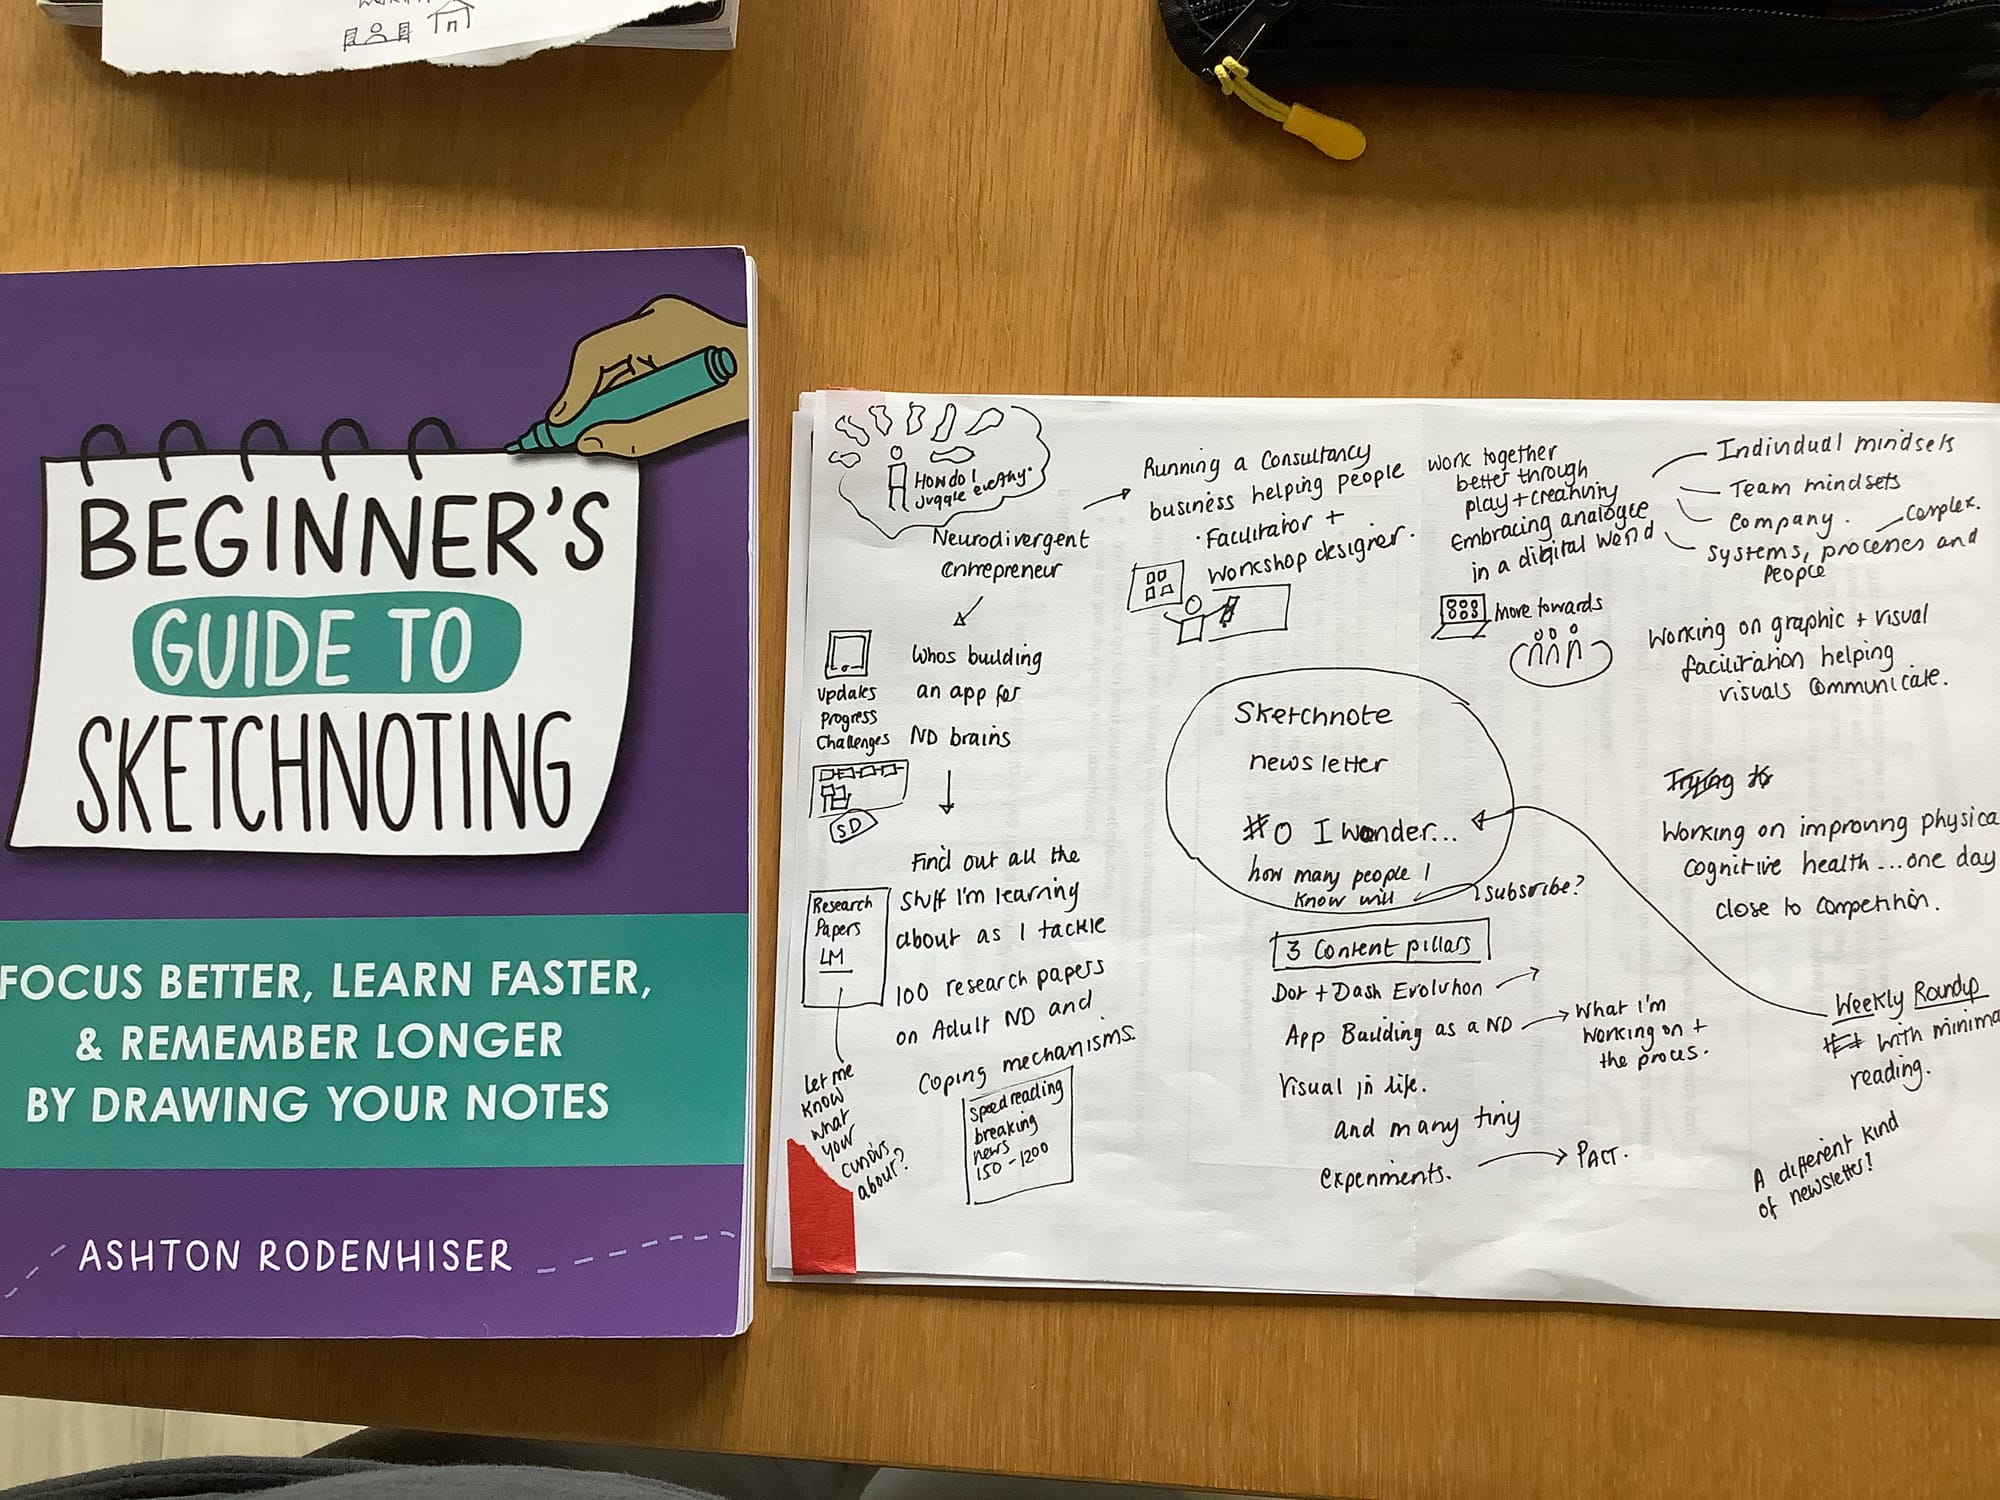 BEGINNER'S
GUIDE TO
SKETCHNOTING
FOCUS BETTER, LEARN FASTER,
& REMEMBER LONGER
BY DRAWING YOUR NOTES
ASHTON RODENHISER
How do I
juggle everything?
Neurodivergent
entrepreneur
Whos building
an app for
ND brains
Updates
Progress
Challenges
SD
Find out all the
stuff I'm learning
about as I tackle
100 research papers
on Adult ND and
Coping mechanisms.
Research
Papers
LM
Let me
know
what
your
curious
about?
speedreading
breaking
news
150-1200
Running a Consultancy
business helping people
· Facilitator +
workshop designer.
work together
better through
play + creativity
Embracing analogue
in a digital world
Individual mindsets
Team mindsets
Company.
Complex.
systems, processes and
People
more towards
Working on graphic + visual
facilitation helping
visuals communicate.
Sketchnote
newsletter
#0 I wonder...
how many people I
know will
subscribe?
3 Content pillars
Dot + Dash Evolution
App Building as a ND
What I'm
working on +
the proces.
Visual in life.
and many tiny
experiments.
PACT.
Trying to
Working on improving physica
cognitive health ... one day
close to competition.
Weekly Roundup
with minima
reading.
A different kind
of newsletter!